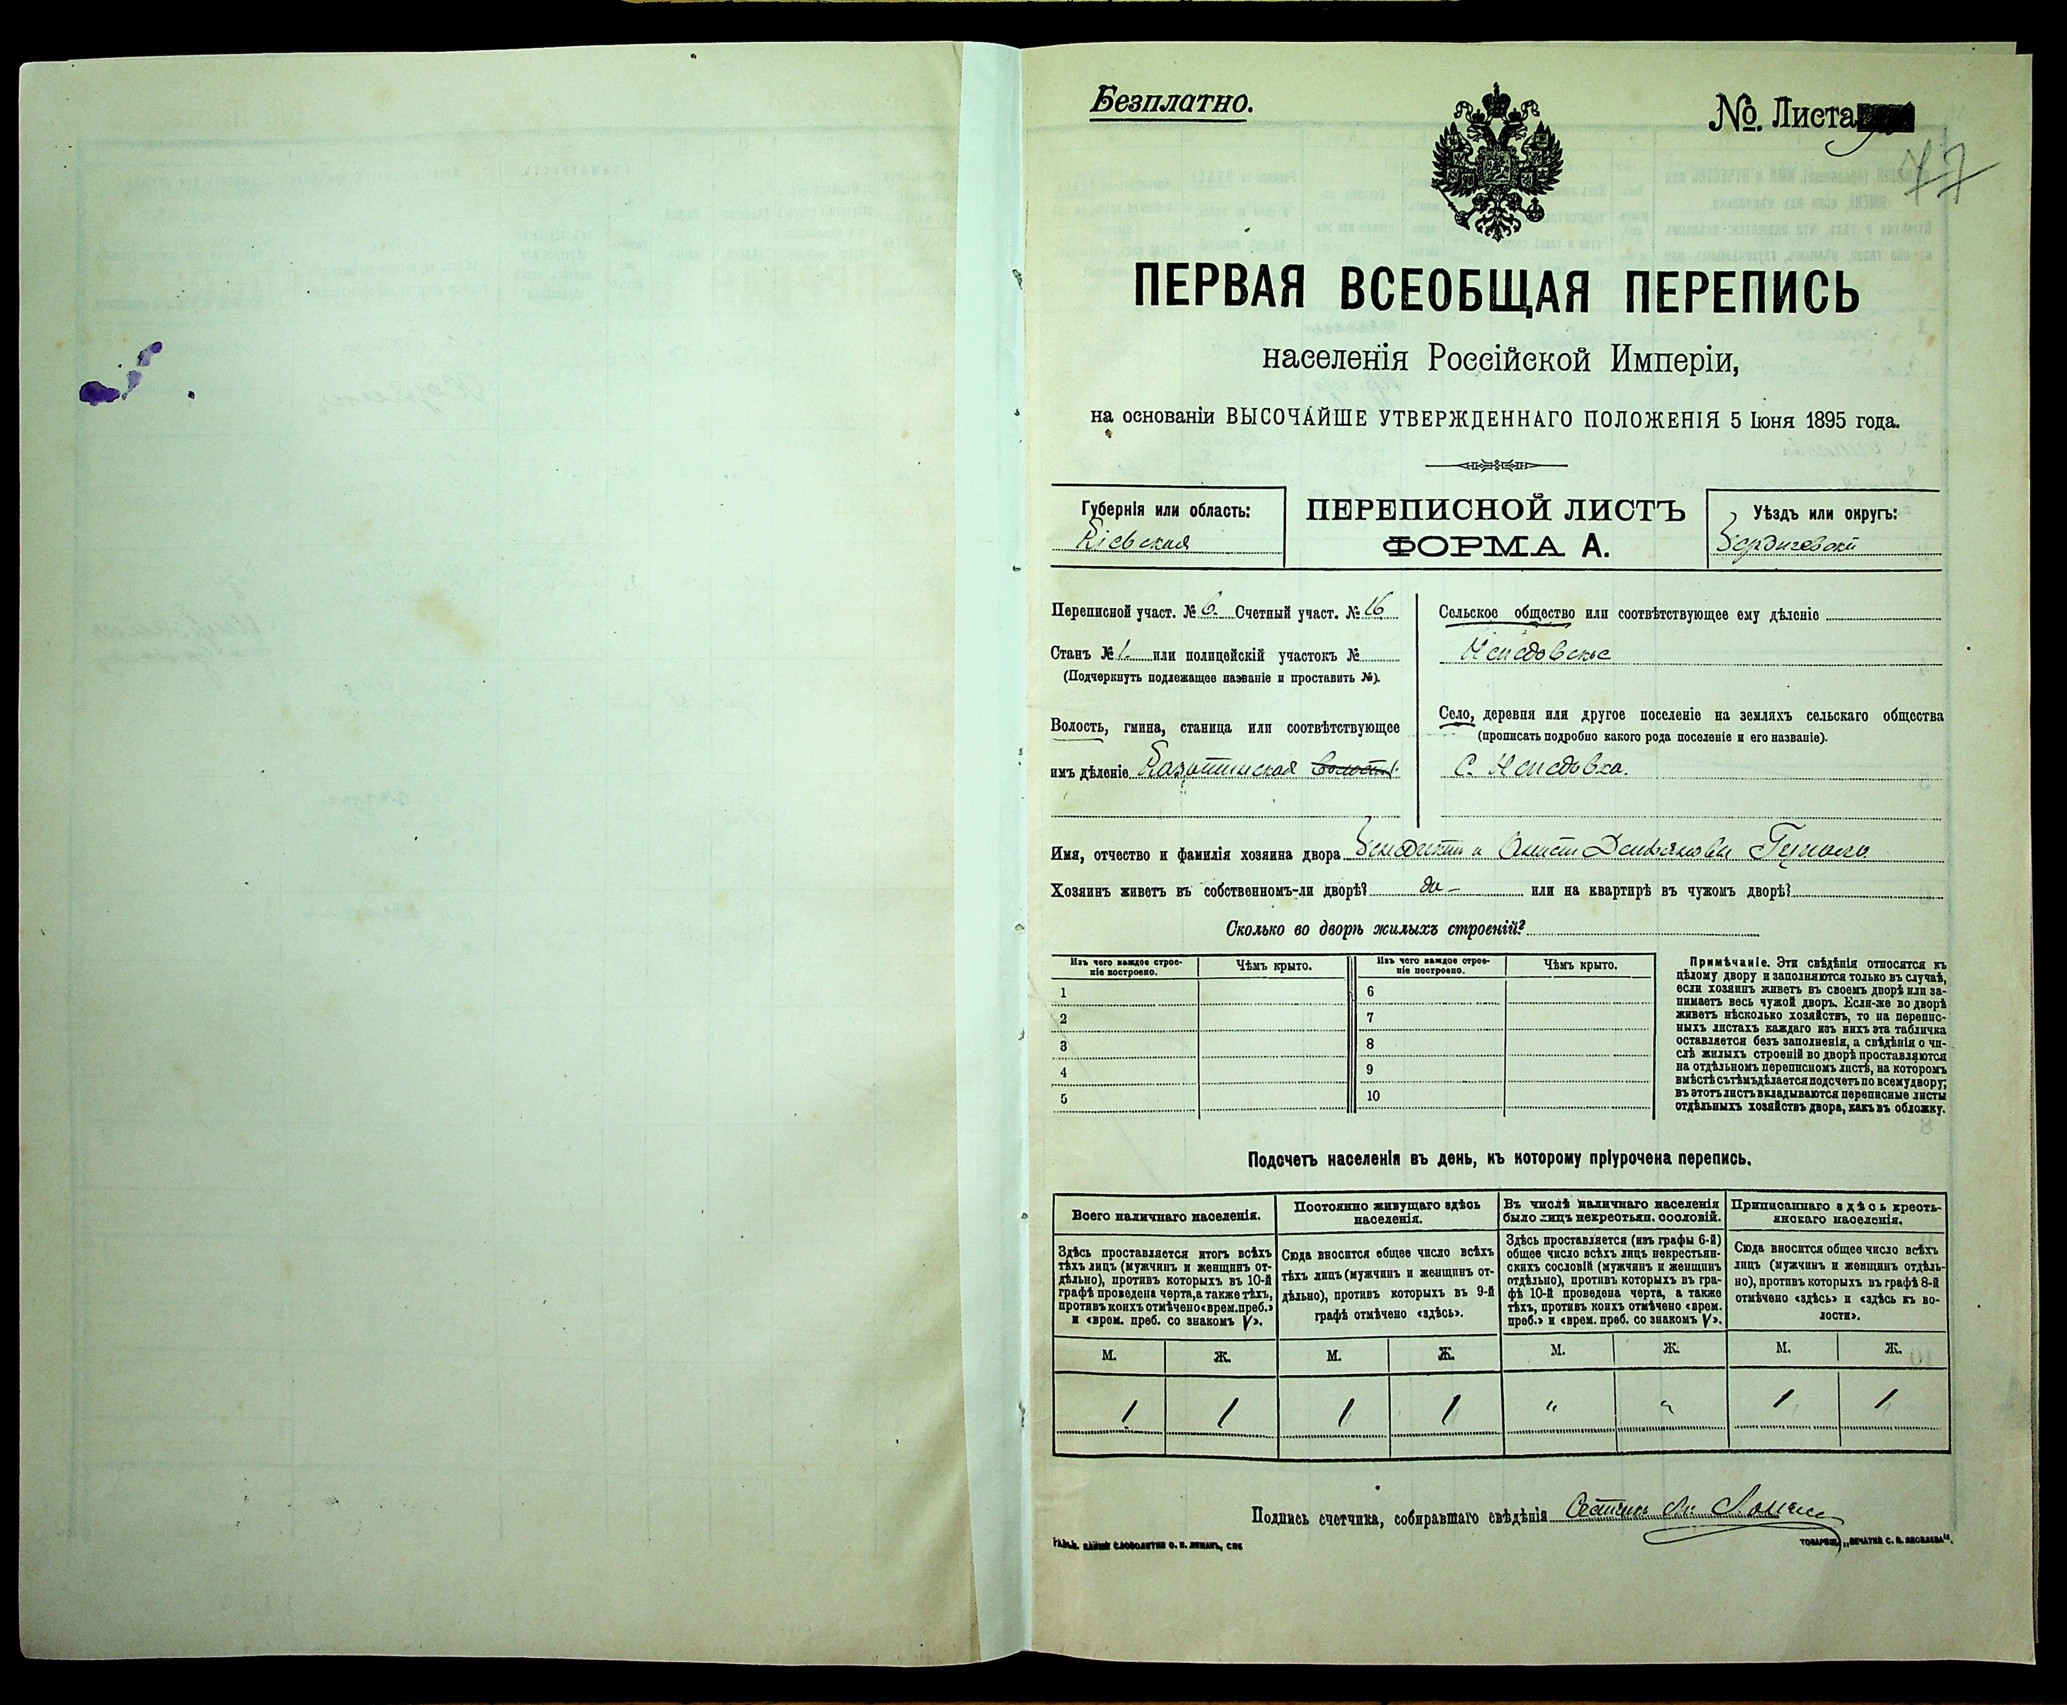 Безплатно.
№ Листа
77
ПЕРВАЯ ВСЕОБЩАЯ ПЕРЕПИСЬ
населенія Россійской Имперіи,
на основаніи ВЫСОЧАЙШЕ УТВЕРЖДЕННАГО ПОЛОЖЕНІЯ 5 Іюня 1895 года.
Губернія или область:
Кіевская
ПЕРЕПИСНОЙ ЛИСТЪ
ФОРМА А.
Уѣздъ или округъ:
Бердичевскій
Переписной участ. № 6. Счетный участ. № 16
Станъ № 1. или полицейскій участокъ №
(Подчеркнуть подлежащее названіе и проставить №).
Волость, гмина, станица или соотвѣтствующее
имъ дѣленіе Казатинская волость.
Сельское общество или соотвѣтствующее ему дѣленіе
Непедовское
Село, деревня или другое поселеніе на земляхъ сельскаго общества
(прописать подробно какого рода поселеніе и его названіе).
С. Непедовка.
Имя, отчество и фамилія хозяина двора Бенедиктъ и
Хозяинъ живетъ въ собственномъ-ли дворѣ? да – или на квартирѣ въ чужомъ дворѣ?
Сколько во дворѣ жилыхъ строеній?
Изъ чего каждое строе-
ніе построено.
Чѣмъ крыто.
1
2
3
4
5
Изъ чего каждое строе-
ніе построено.
Чѣмъ крыто.
6
7
8
9
10
Примѣчаніе. Эти свѣдѣнія относятся къ
цѣлому двору и заполняются только въ случаѣ,
если хозяинъ живетъ въ своемъ дворѣ или за-
нимаетъ весь чужой дворъ. Если-же во дворѣ
живетъ нѣсколько хозяйствъ, то на перепис-
ныхъ листахъ каждаго изъ нихъ эта табличка
оставляется безъ заполненія, а свѣдѣнія о чи-
слѣ жилыхъ строеній во дворѣ проставляются
на отдѣльномъ переписномъ листѣ, на которомъ
вмѣстѣ съ тѣмъ дѣлается подсчетъ по всему двору;
въ этотъ листъ вкладываются переписные листы
отдѣльныхъ хозяйствъ двора, какъ въ обложку.
Подсчетъ населенія въ день, къ которому пріурочена перепись.
Всего наличнаго населенія.
Здѣсь проставляется итогъ всѣхъ
тѣхъ лицъ (мужчинъ и женщинъ от-
дѣльно), противъ которыхъ въ 10-й
графѣ проведена черта, а также тѣхъ,
противъ коихъ отмѣчено «врем. преб.»
и «врем. преб. со знакомъ V».
М. Ж.
1 1
Постоянно живущаго здѣсь
населенія.
Сюда вносится общее число всѣхъ
тѣхъ лицъ (мужчинъ и женщинъ от-
дѣльно), противъ которыхъ въ 9-й
графѣ отмѣчено «здѣсь».
М. Ж.
1 1
Въ числѣ наличнаго населенія
было лицъ некрестьян. сословій.
Здѣсь проставляется (изъ графы 6-й)
общее число всѣхъ лицъ некрестьян-
скихъ сословій (мужчинъ и женщинъ
отдѣльно), противъ которыхъ въ гра-
фѣ 10-й проведена черта, а также
тѣхъ, противъ коихъ отмѣчено «врем.
преб.» и «врем. преб. со знакомъ V».
М. Ж.
" "
Приписаннаго здѣсь кресть-
янскаго населенія.
Сюда вносится общее число всѣхъ
лицъ (мужчинъ и женщинъ отдѣль-
но), противъ которыхъ въ графѣ 8-й
отмѣчено «здѣсь» и «здѣсь къ во-
лости».
М. Ж.
1 1
Подпись счетчика, собиравшаго свѣдѣнія
СЛОВОЛИТНИ О. И. ЛЕМАНЪ, СПБ
ТОВАРИЩ. „ПЕЧАТНЯ С. П. ЯКОВЛЕВА“.